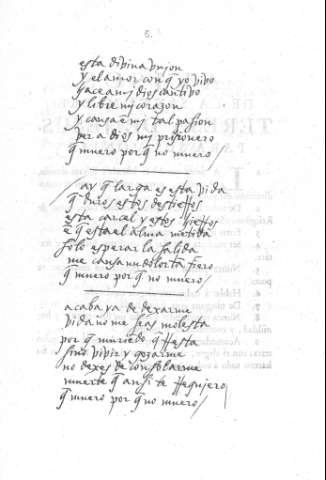 esta divina vnjon
y el amor con q̄ yo vivo
haçe a mj dios cautivo
y libre mj corazon
y causa ē mj tal pasion
ver a dios mj prisionero
q̄ muero por q̄ no muero /
ay q̄ larga es esta vida
q̄ duros estos destierros
esta carcel y estos hierros
ē q̄ esta el alma metida
solo esperar la salida
me causa un dolor tā fiero
q̄ muero por q̄ no muero /
acaba ya de dexarme
vida no me seas molesta
por q̄ muriēdo q̄ resta
sino vivir y gozarme
no dexes de consolarme
muerte q̄ ansi te requiero
q̄ muero por q̄ no muero /